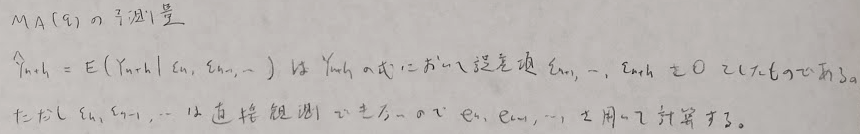 MA(q) の予測量
Ŷn+h = E(Yn+h | εn, εn-1, …) は Yn+h の式において誤差項 εn+1, …, εn+h を0としたものである。
ただし εn, εn-1, … は直接観測できないので en, en-1, …, を用いて計算する。